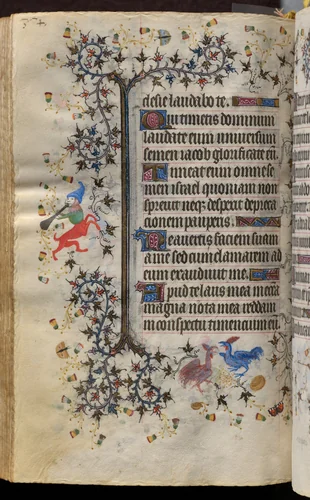 clesie laudabo te.
Qui timens dominum
laudate eum universum
semen iacob glorificate eu
Timeat eum omne se
men israel quoniam non
sprevit neq; despexit depreca
cionem pauperis.
Nec avertit faciem suam
a me sed cum clamarem ad
eum exaudivit me.
Apud te laus mea in eccla
magna vota mea reddam
in conspectu timencium eu